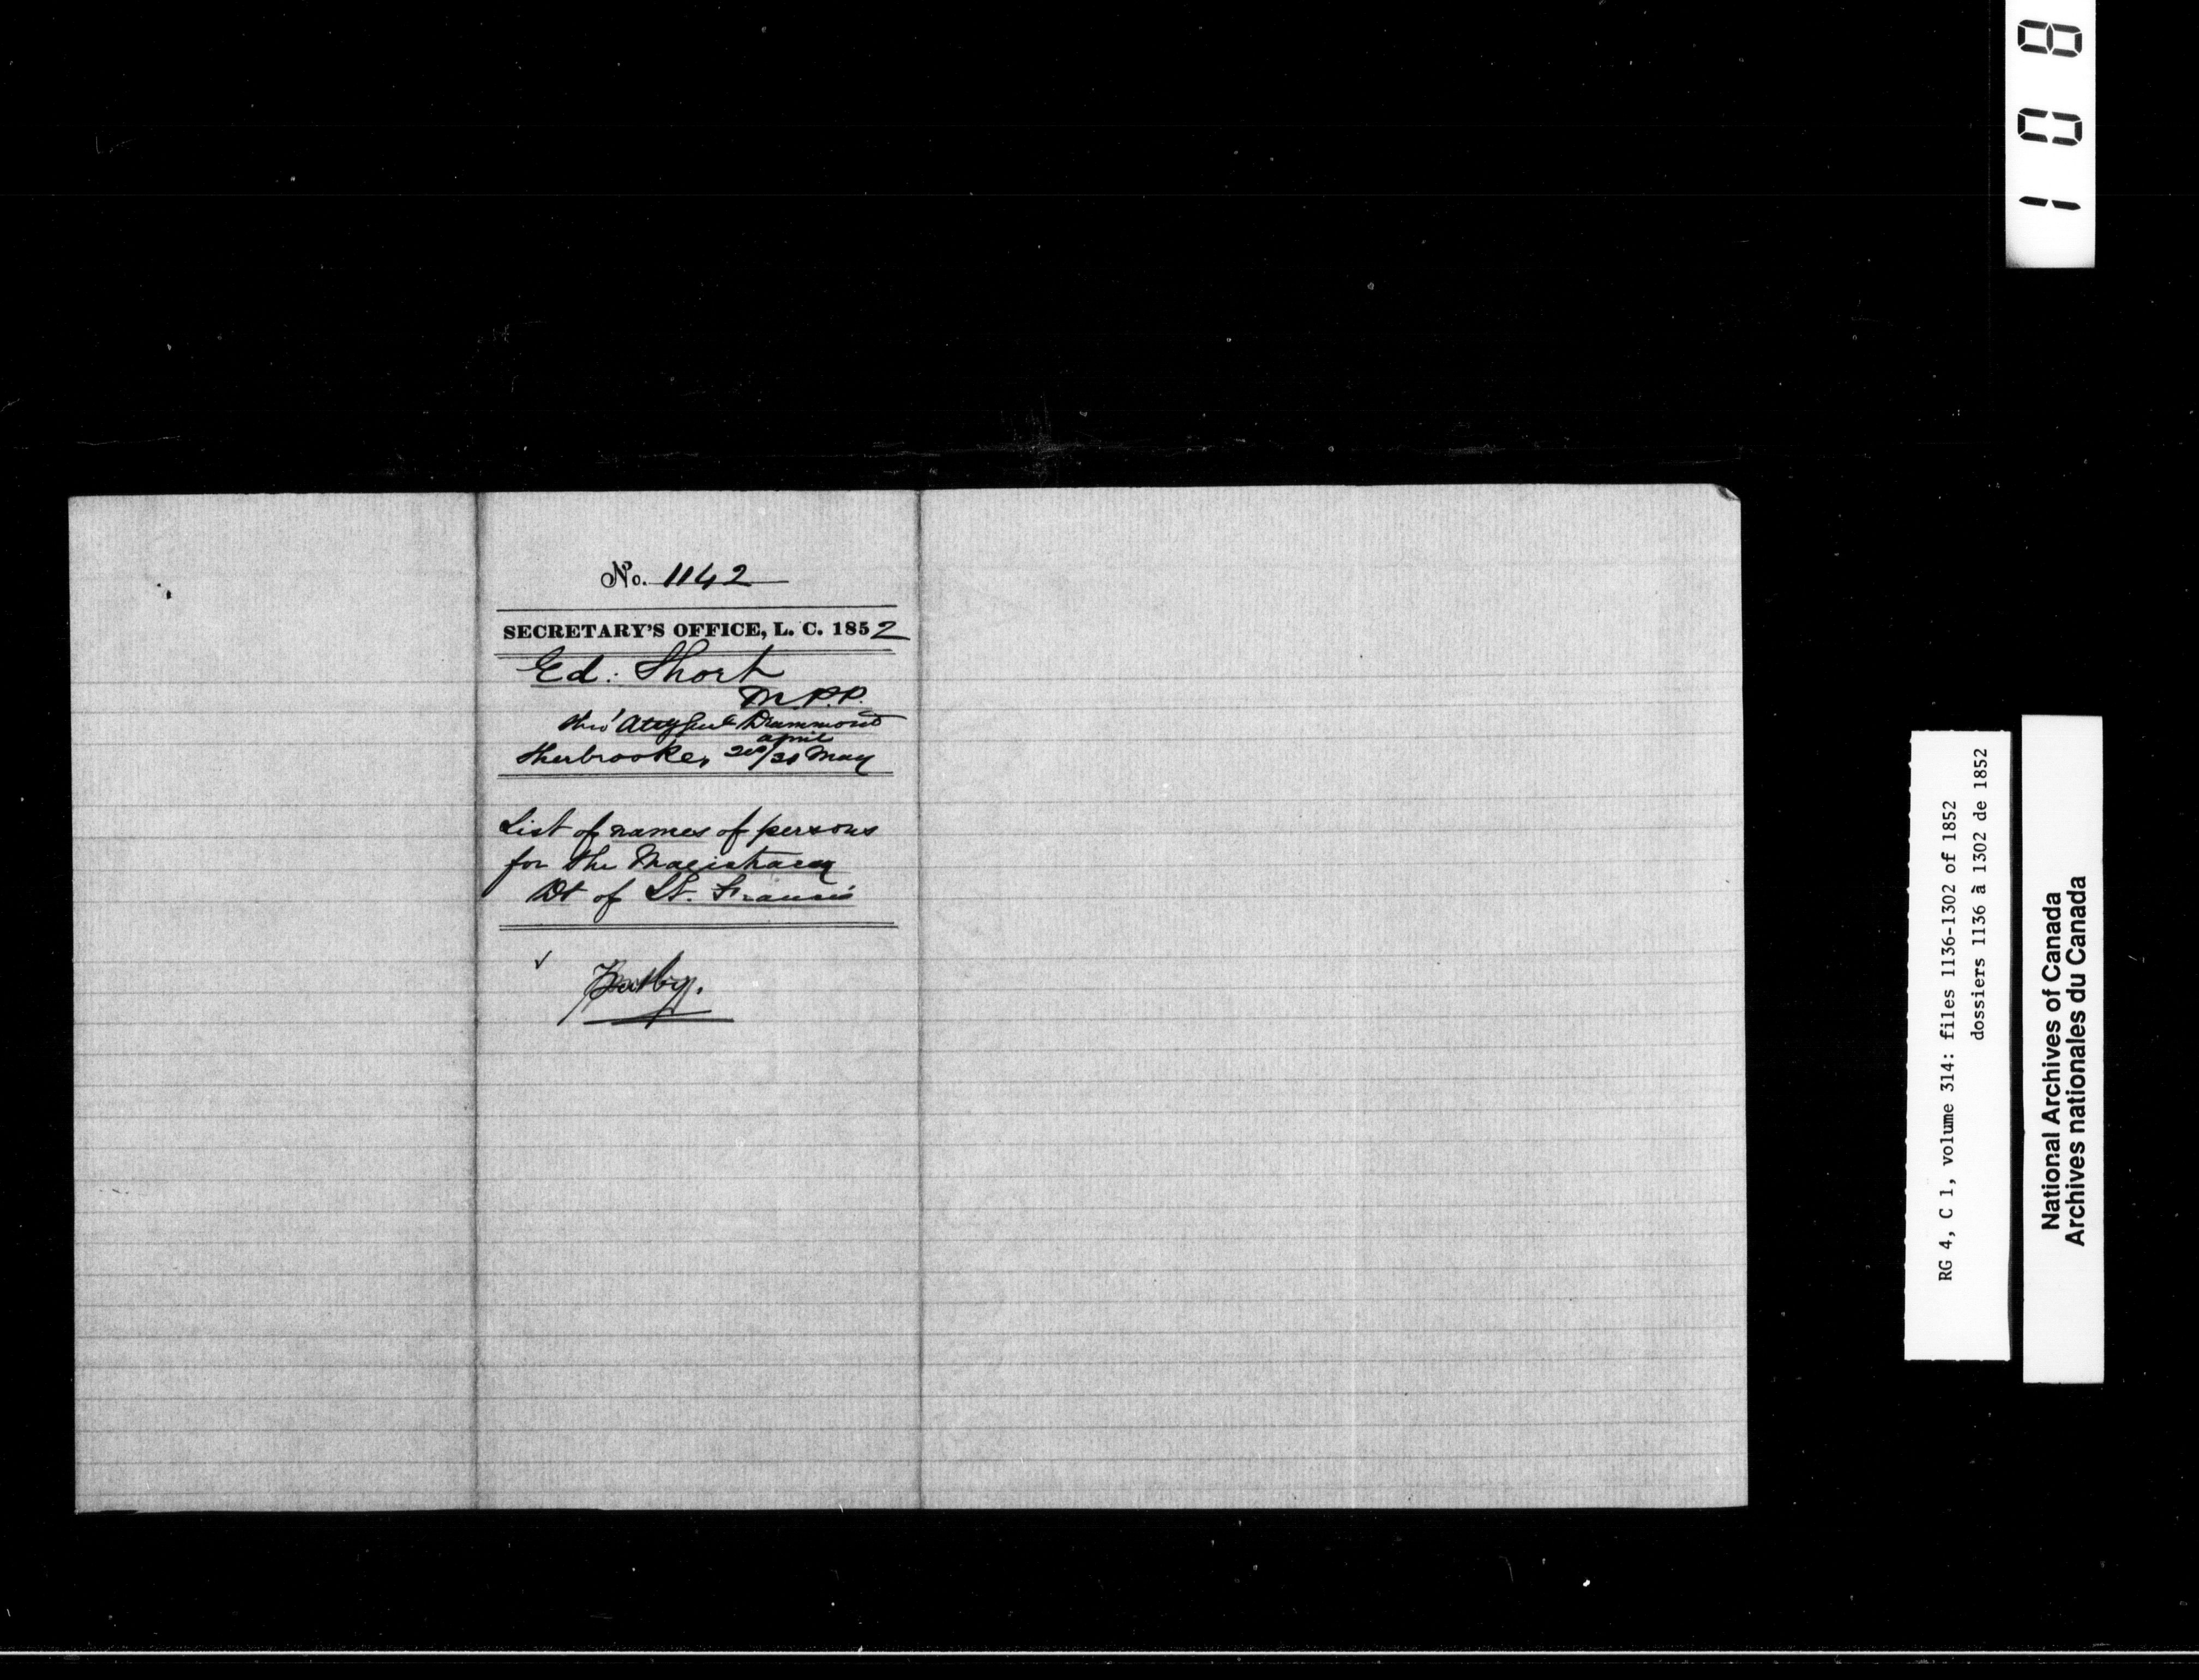 No. 1142
SECRETARY'S OFFICE, L. C. 1852
Ed: Short
M.P.P.
thro' Atty Genl Drummond
april
Sherbrooke, 20/30 May
List of names of persons
for the Magistracy
Dt of St. Francis
108
RG 4, C 1, volume 314: files 1136-1302 of 1852
dossiers 1136 à 1302 de 1852
National Archives of Canada
Archives nationales du Canada